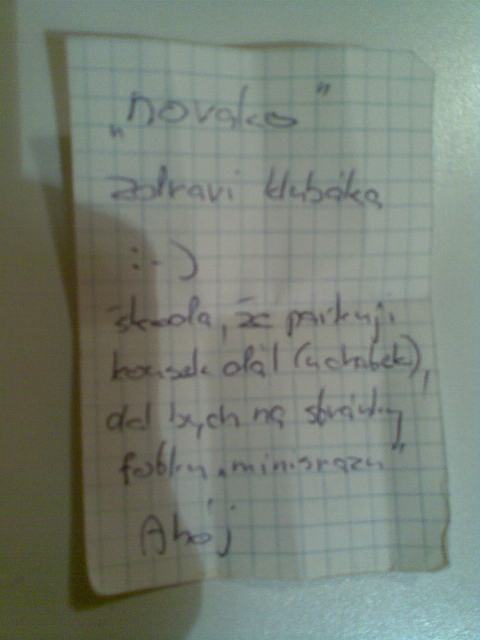 „novako"
zdraví klubáka
:-)
škoda, že parkuji
kousek dál (u chabek),
dal bych na stránky
fotku „minisrazu"
Ahoj